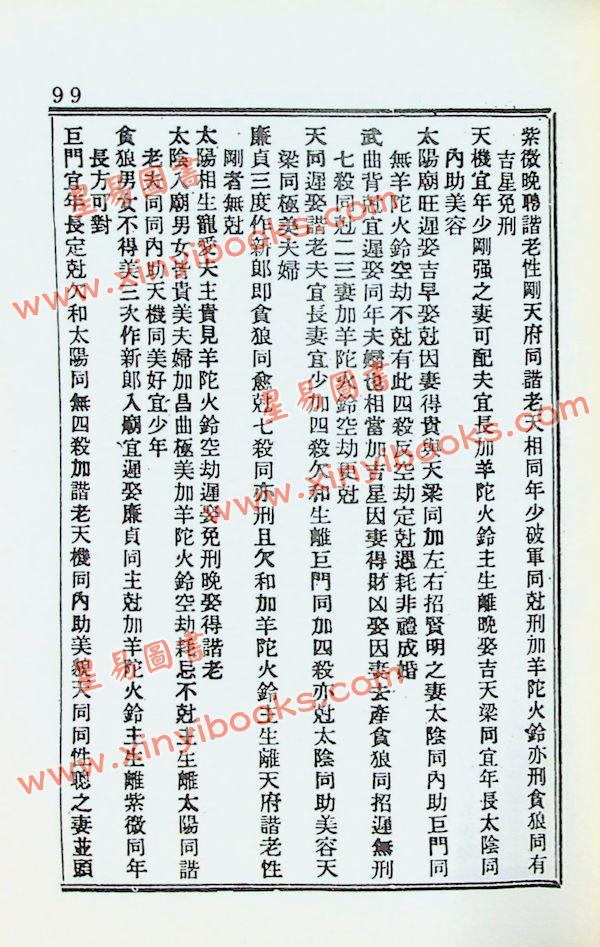 99
紫微晚聘諧老性剛天府同諧老天相同年少破軍同尅刑加羊陀火鈴亦刑貪狼同有
吉星免刑
天機宜年少剛强之妻可配夫宜長加羊陀火鈴主生離晚娶吉天梁同宜年長太陰同
內助美容
太陽廟旺遲娶吉早娶尅因妻得貴與天梁同加左右招賢明之妻太陰同內助巨門同
無羊陀火鈴空劫不尅有此四殺及空劫定尅遇耗非禮成婚
武曲背尅宜遲娶同年夫婦也相當加吉星因妻得財凶娶因妻去產貪狼同招遲無刑
七殺同尅二三妻加羊陀火鈴空劫更尅
天同遲娶諧老夫宜長妻宜少加四殺欠和生離巨門同加四殺亦尅太陰同助美容天
梁同極美夫婦
廉貞三度作新郎即貪狼同愈尅七殺同亦刑且欠和加羊陀火鈴主生離天府諧老性
剛者無尅
太陽相生寵愛夫主貴見羊陀火鈴空劫遲娶免刑晚娶得諧老
太陰入廟男女皆貴美夫婦加昌曲極美加羊陀火鈴空劫耗忌不尅主生離太陽同諧
老夫同同內助天機同美好宜少年
貪狼男女不得美三次作新郎入廟宜遲娶廉貞同主尅加羊陀火鈴主生離紫微同年
長方可對
巨門宜年長定尅欠和太陽同無四殺加諧老天機同內助美貌天同同性聰之妻並頭
星易圖書
www.xinyibooks.com
星易圖書
www.xinyibooks.com
星易圖書
www.xinyibooks.com